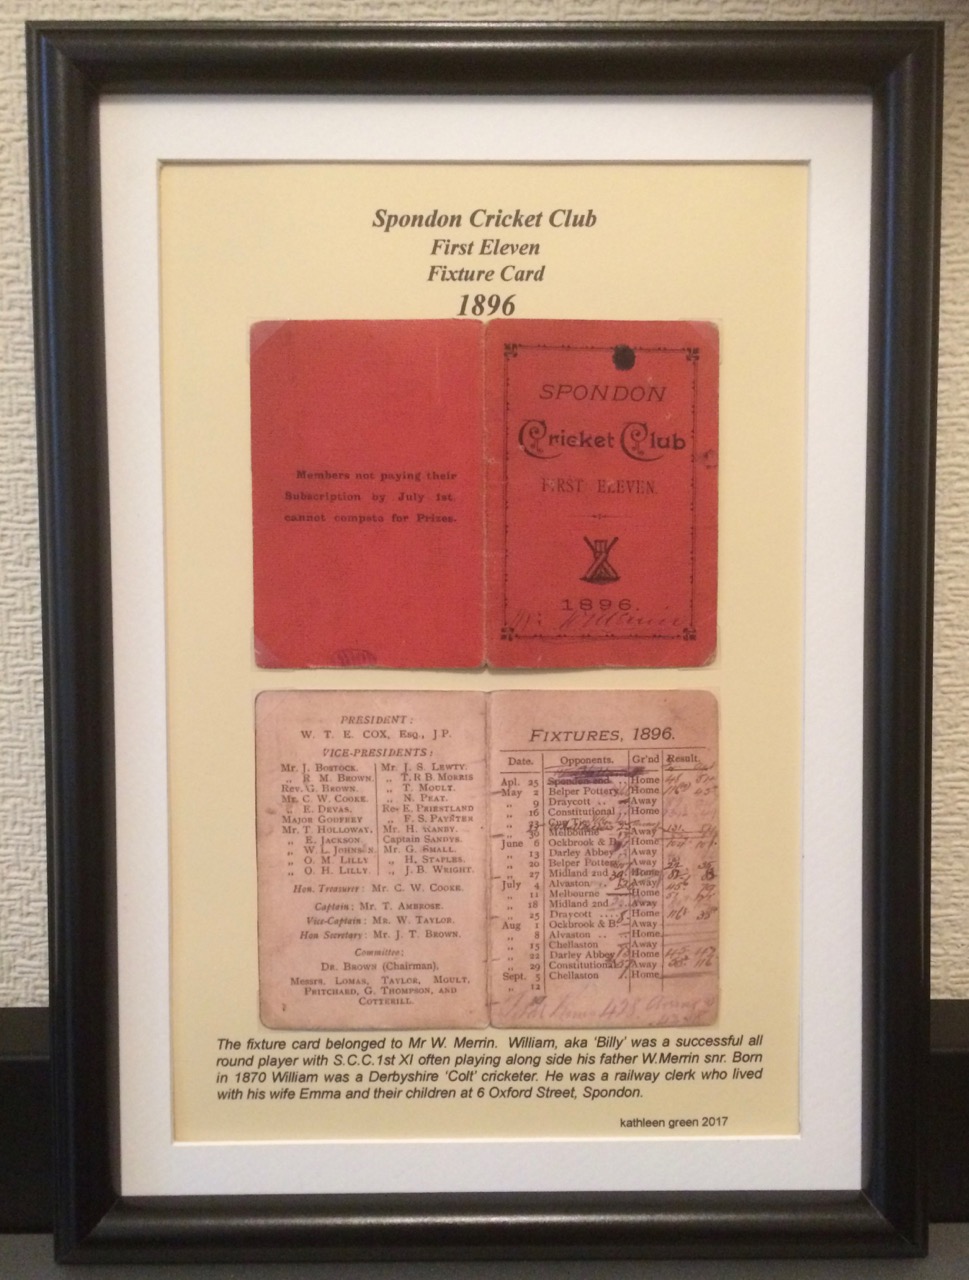 Spondon Cricket Club
First Eleven
Fixture Card
1896
Members not paying their
Subscription by July 1st.
cannot compete for Prizes.
SPONDON
Cricket Club
FIRST ELEVEN.
1896.
PRESIDENT:
W. T. E. COX, Esq., J P.
VICE-PRESIDENTS:
Mr. J. BOSTOCK. Mr. J. S. LEWTY.
„ R. M. BROWN. „ T. R B. MORRIS
Rev. G. BROWN. „ T. MOULT.
Mr. C. W. COOKE. „ N. PEAT.
„ E. DEVAS. Rev E. PRIESTLAND
MAJOR GODFREY „ F. S. PAYSTER
Mr. T. HOLLOWAY. Mr. H. HANBY.
„ E. JACKSON. Captain SANDYS.
„ W. L. JOHNSON. Mr. G. SMALL.
„ O. M. LILLY „ H. STAPLES.
„ O. H. LILLY. „ J. B. WRIGHT.
Hon. Treasurer: Mr. C. W. COOKE.
Captain: Mr. T. AMBROSE.
Vice-Captain: Mr. W. TAYLOR.
Hon Secretary: Mr. J. T. BROWN.
Committee:
DR. BROWN (Chairman),
Messrs. LOMAS, TAYLOR, MOULT,
PRITCHARD, G. THOMPSON, AND
COTTERILL.
FIXTURES, 1896.
Date. Opponents. Gr'nd Result.
Apl. 25 Home
May 2 Belper Pottery Home
„ 9 Draycott .. Away
„ 16 Constitutional Home
„ 23
„ 30 Melbourne Away
June 6 Ockbrook & B. Home
„ 13 Darley Abbey Away
„ 20 Belper Pottery Away
„ 27 Midland 2nd Home
July 4 Alvaston Away
„ 11 Melbourne Home
„ 18 Midland 2nd Away
„ 25 Draycott .... Home
Aug 1 Ockbrook & B. Away
„ 8 Alvaston .. Home
„ 15 Chellaston Away
„ 22 Darley Abbey Home
„ 29 Constitutional Away
Sept. 5 Chellaston Home
„ 12
The fixture card belonged to Mr W. Merrin. William, aka 'Billy' was a successful all
round player with S.C.C.1st XI often playing along side his father W.Merrin snr. Born
in 1870 William was a Derbyshire 'Colt' cricketer. He was a railway clerk who lived
with his wife Emma and their children at 6 Oxford Street, Spondon.
kathleen green 2017